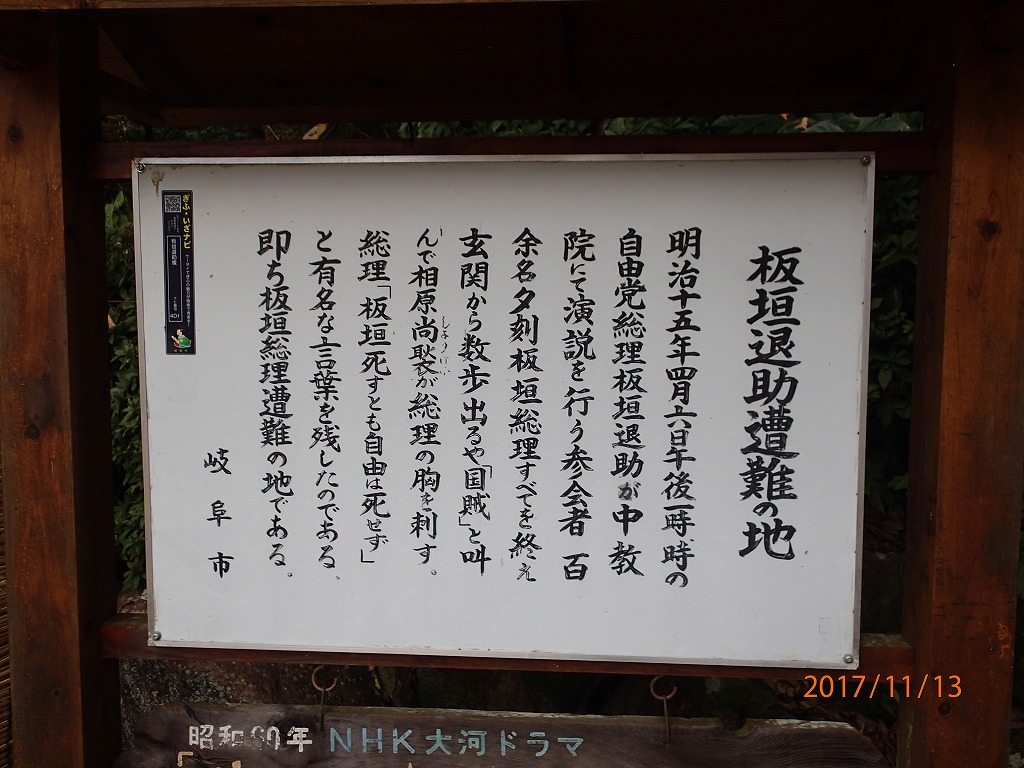 板垣退助遭難の地
明治十五年四月六日午後一時、時の
自由党総理板垣退助が中教
院にて演説を行う参会者 百
余名夕刻板垣総理すべてを終え
玄関から数歩出るや「国賊」と叫
んで相原尚褧が総理の胸を刺す。
しょうけい
総理「板垣死すとも自由は死せず」
と有名な言葉を残したのである。
即ち板垣総理遭難の地である。
岐阜市
ぎふ・いざナビ
401
昭和60年 NHK大河ドラマ
2017/11/13